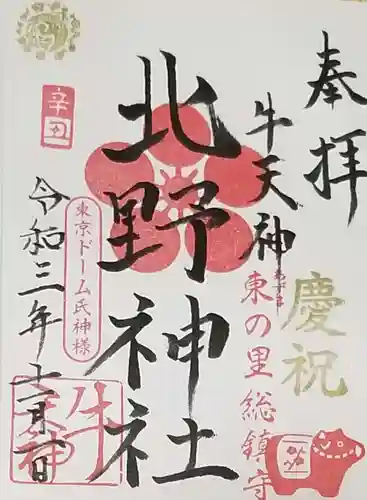 奉拝
慶祝
牛天神
あずま
東の里総鎮守
北野神社
東京ドーム氏神様
辛丑
令和三年十一月一日
牛天神